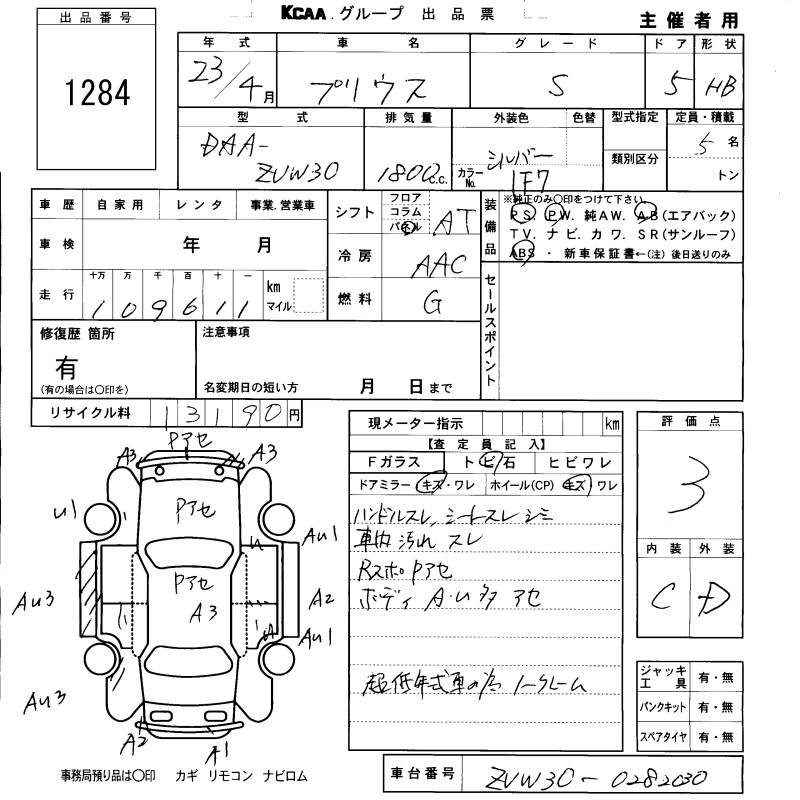 KCAA.グループ 出品票
主催者用
出品番号
1284
年式 車名 グレード ドア 形状
23/4月 プリウス S 5 HB
型式 排気量 外装色 色替 型式指定 定員・積載
DAA-ZVW30 1800c.c. シルバー カラーNo. 1F7 類別区分 5名 トン
車歴 自家用 レンタ 事業.営業車
車検 年 月
走行 十万 万 千 百 十 一 km マイル
109611
シフト フロア コラム パネル AT
冷房 AAC
燃料 G
装備品 ※純正のみ〇印をつけて下さい
PS. PW. 純AW. AB(エアバック)
TV. ナビ. カワ. SR(サンルーフ)
ABS ・ 新車保証書←(注)後日送りのみ
セールスポイント
修復歴 箇所
有
(有の場合は〇印を)
注意事項
名変期日の短い方 月 日まで
リサイクル料 13190円
現メーター指示 km
【査定員記入】
Fガラス トビ石 ヒビワレ
ドアミラー キズ・ワレ ホイール(CP) キズ ワレ
ハンドルスレ、シートスレ シミ
車内 汚れ スレ
Rスポ Pアセ
ボディ A・U多 アセ
超低年式車の為 ノークレーム
評価点
3
内装 外装
C D
ジャッキ工具 有・無
パンクキット 有・無
スペアタイヤ 有・無
Pアセ
A3 A3
U1 Pアセ
U AU1
Pアセ
AU3 A3 A2
A AU1
AU3
A2 A1
事務局預り品は〇印 カギ リモコン ナビロム
車台番号 ZVW30-0282030